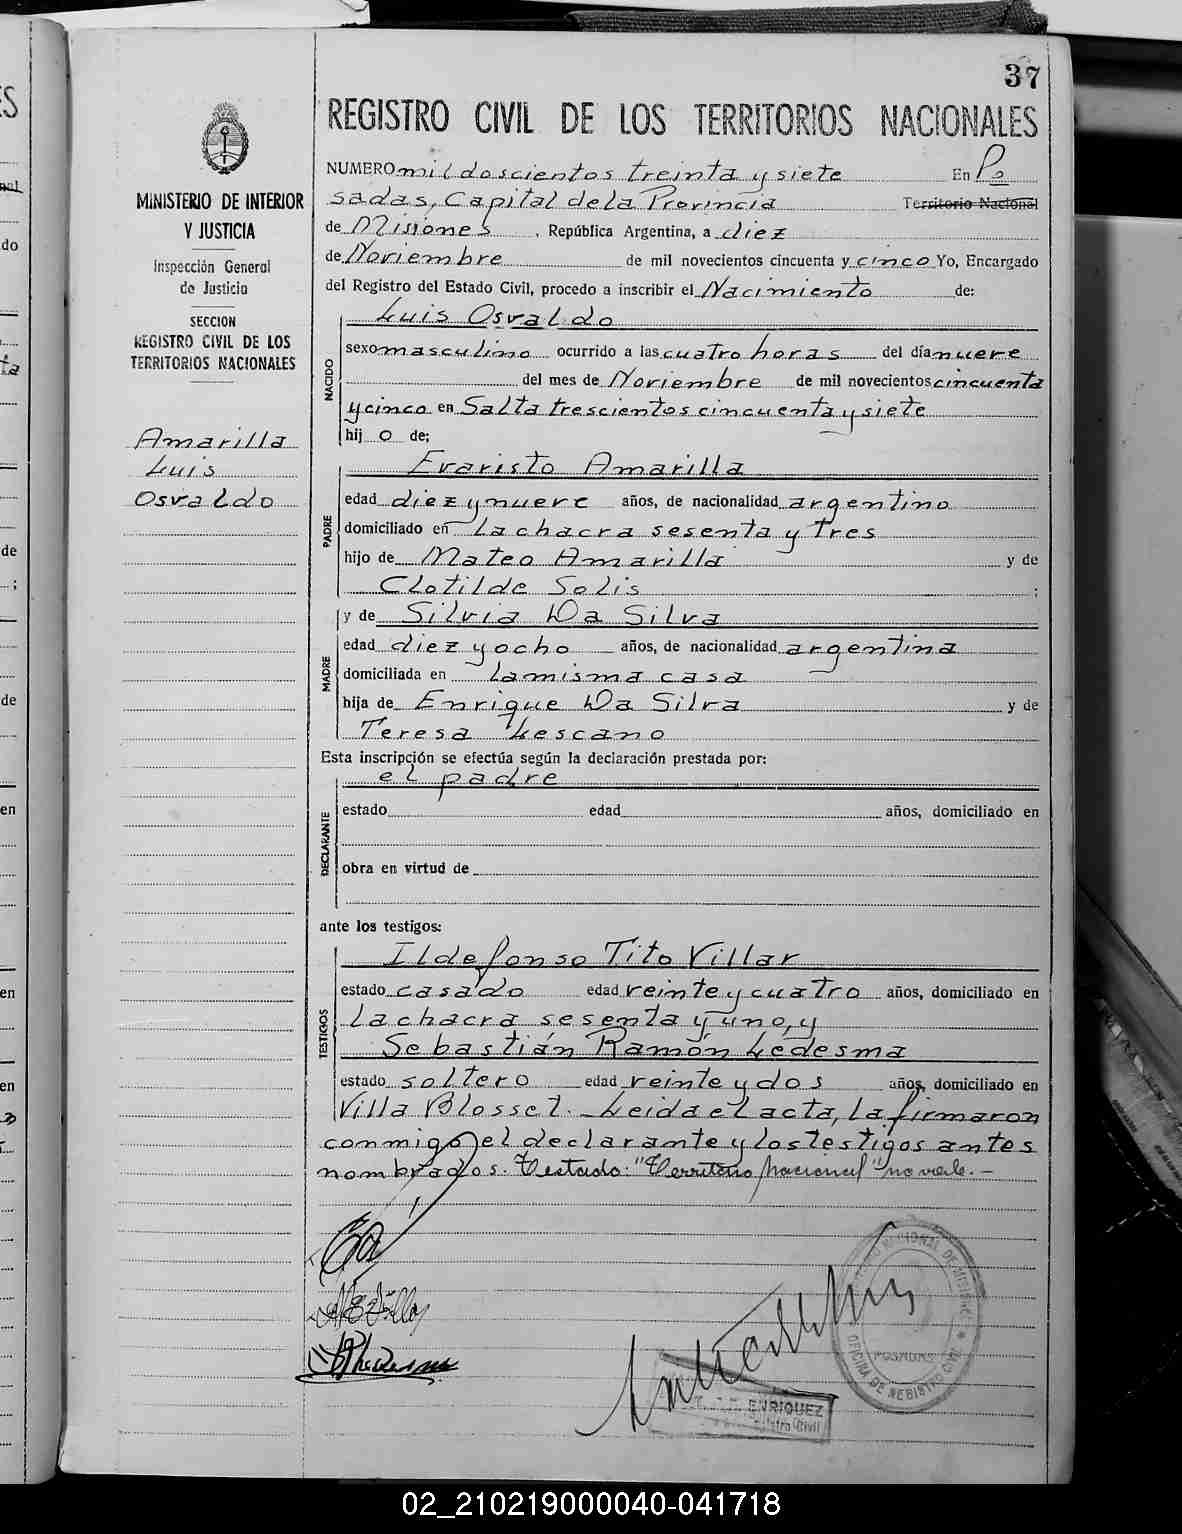 37
REGISTRO CIVIL DE LOS TERRITORIOS NACIONALES
MINISTERIO DE INTERIOR
Y JUSTICIA
Inspección General
de Justicia
SECCION
REGISTRO CIVIL DE LOS
TERRITORIOS NACIONALES
Amarilla
Luis
Osvaldo
NUMERO mil doscientos treinta y siete En Po
sadas, Capital de la Provincia Territorio Nacional
de Misiones , República Argentina, a diez
de Noviembre de mil novecientos cincuenta y cinco Yo, Encargado
del Registro del Estado Civil, procedo a inscribir el Nacimiento de:
NACIDO
Luis Osvaldo
sexo masculino ocurrido a las cuatro horas del día nueve
del mes de Noviembre de mil novecientos cincuenta
y cinco en Salta trescientos cincuenta y siete
hij o de;
PADRE
Evaristo Amarilla
edad diez y nueve años, de nacionalidad argentino
domiciliado en la chacra sesenta y tres
hijo de Mateo Amarilla y de
Clotilde Solis ;
MADRE
y de Silvia Da Silva
edad diez y ocho años, de nacionalidad argentina
domiciliada en la misma casa
hija de Enrique Da Silva y de
Teresa Lescano
Esta inscripción se efectúa según la declaración prestada por:
DECLARANTE
el padre
estado edad años, domiciliado en
obra en virtud de
ante los testigos:
TESTIGOS
Ildefonso Tito Villar
estado casado edad veinte y cuatro años, domiciliado en
la chacra sesenta y uno, y
Sebastián Ramón Ledesma
estado soltero edad veinte y dos años, domiciliado en
Villa Blosset. Leida el acta, la firmaron
conmigo el declarante y los testigos antes
nombrados. Testado: "Territorio Nacional" no vale.-
POSADAS
OFICINA DE REGISTRO CIVIL
ENRIQUEZ
Registro Civil
02_210219000040-041718